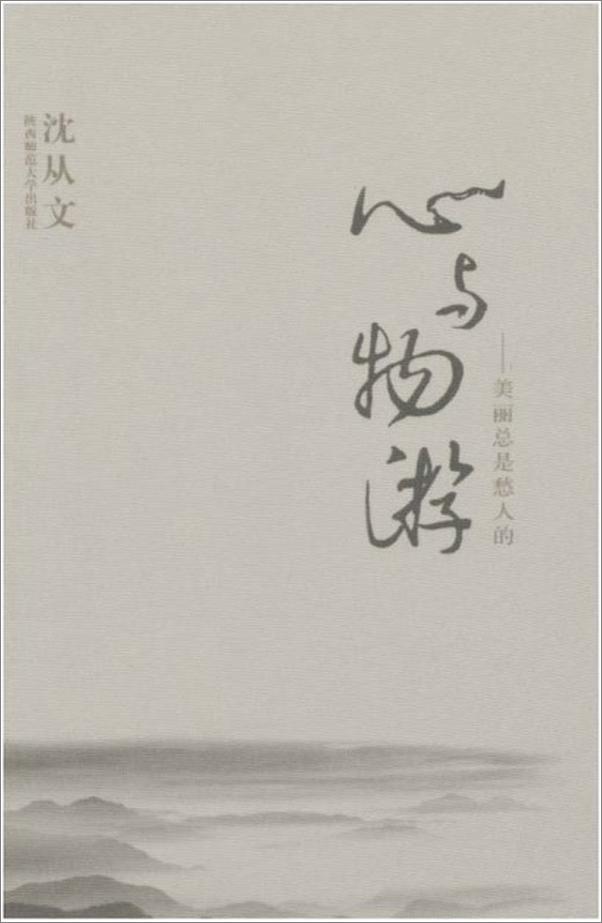 心与物游
——美丽总是愁人的
沈从文
陕西师范大学出版社